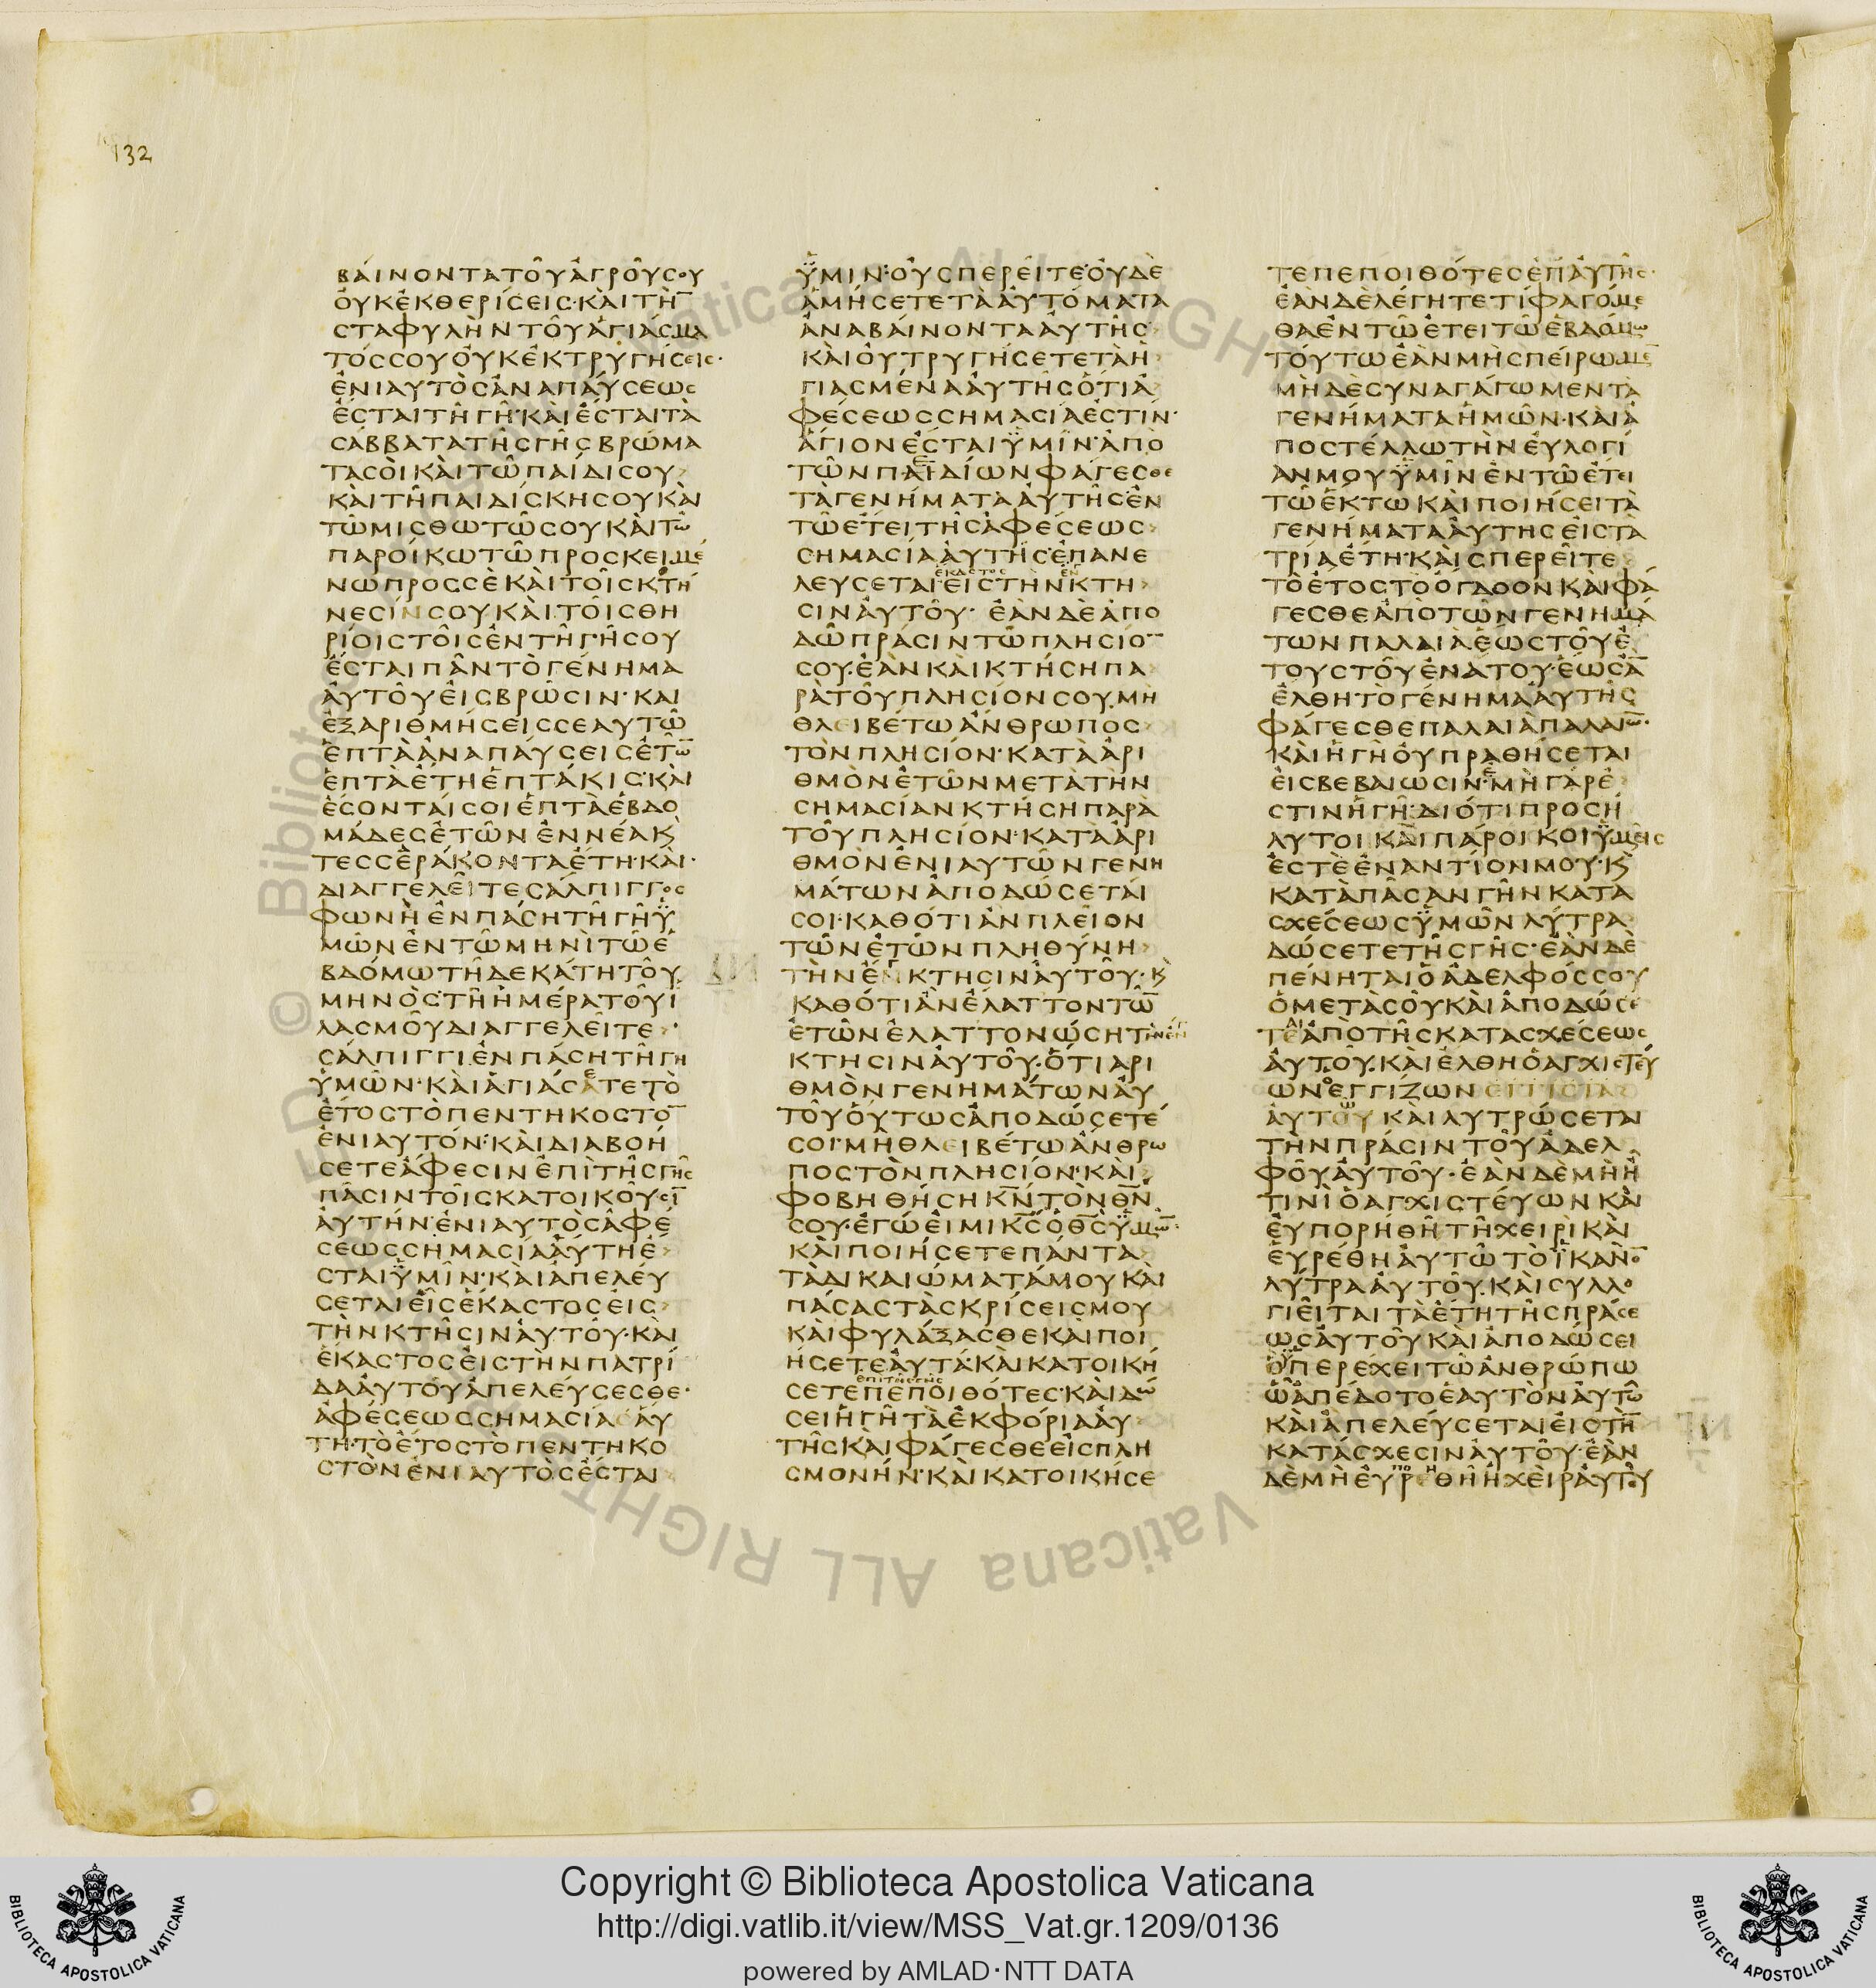 132
ΒΑΙΝΟΝΤΑΤΟΥΑΓΡΟΥΣΟΥ
ΟΥΚΕΚΘΕΡΙΣΕΙΣ·ΚΑΙΤΗ¯
ΣΤΑΦΥΛΗΝΤΟΥΑΓΙΑΣΜΑ
ΤΟΣΣΟΥΟΥΚΕΚΤΡΥΓΗΣΕΙΣ·
ΕΝΙΑΥΤΟΣΑΝΑΠΑΥΣΕΩΣ
ΕΣΤΑΙΤΗΓΗ·ΚΑΙΕΣΤΑΙΤΑ
ΣΑΒΒΑΤΑΤΗΣΓΗΣΒΡΩΜΑ
ΤΑΣΟΙΚΑΙΤΩΠΑΙΔΙΣΟΥ
ΚΑΙΤΗΠΑΙΔΙΣΚΗΣΟΥΚΑΙ
ΤΩΜΙΣΘΩΤΩΣΟΥΚΑΙΤΩ
ΠΑΡΟΙΚΩΤΩΠΡΟΣΚΕΙΜΕ
ΝΩΠΡΟΣΣΕΚΑΙΤΟΙΣΚΤΗ
ΝΕΣΙΝΣΟΥΚΑΙΤΟΙΣΘΗ
ΡΙΟΙΣΤΟΙΣΕΝΤΗΓΗΣΟΥ
ΕΣΤΑΙΠΑΝΤΟΓΕΝΗΜΑ
ΑΥΤΟΥΕΙΣΒΡΩΣΙΝ·ΚΑΙ
ΕΞΑΡΙΘΜΗΣΕΙΣΣΕΑΥΤΩ
ΕΠΤΑΑΝΑΠΑΥΣΕΙΣΕΤΩ¯
ΕΠΤΑΕΤΗΕΠΤΑΚΙΣ·ΚΑΙ
ΕΣΟΝΤΑΙΣΟΙΕΠΤΑΕΒΔΟ
ΜΑΔΕΣΕΤΩΝΕΝΝΕΑΚ
ΤΕΣΣΕΡΑΚΟΝΤΑΕΤΗ·ΚΑΙ·
ΔΙΑΓΓΕΛΕΙΤΕΣΑΛΠΙΓΓΟΣ
ΦΩΝΗΕΝΠΑΣΗΤΗΓΗΫ
ΜΩΝΕΝΤΩΜΗΝΙΤΩΕ
ΒΔΟΜΩΤΗΔΕΚΑΤΗΤΟΥ
ΜΗΝΟΣ·ΤΗΗΜΕΡΑΤΟΥΪ
ΛΑΣΜΟΥΔΙΑΓΓΕΛΕΙΤΕ·
ΣΑΛΠΙΓΓΙΕΝΠΑΣΗΤΗΓΗ
ΥΜΩΝ·ΚΑΙΑΓΙΑΣΑΤΕΤΟ
ΕΤΟΣΤΟΠΕΝΤΗΚΟΣΤΟ¯
ΕΝΙΑΥΤΟΝ·ΚΑΙΔΙΑΒΟΗ
ΣΕΤΕΑΦΕΣΙΝΕΠΙΤΗΣΓΗΣ
ΠΑΣΙΝΤΟΙΣΚΑΤΟΙΚΟΥΣΙ¯
ΑΥΤΗΝ·ΕΝΙΑΥΤΟΣΑΦΕ
ΣΕΩΣΣΗΜΑΣΙΑΑΥΤΗΕ
ΣΤΑΙΫΜΙΝ·ΚΑΙΑΠΕΛΕΥ
ΣΕΤΑΙΕΙΣΕΚΑΣΤΟΣΕΙΣ
ΤΗΝΚΤΗΣΙΝΑΥΤΟΥ·ΚΑΙ
ΕΚΑΣΤΟΣΕΙΣΤΗΝΠΑΤΡΙ
ΔΑΑΥΤΟΥΑΠΕΛΕΥΣΕΣΘΕ·
ΑΦΕΣΕΩΣΣΗΜΑΣΙΑΑΥ
ΤΗ·ΤΟΕΤΟΣΤΟΠΕΝΤΗΚΟ
ΣΤΟΝΕΝΙΑΥΤΟΣΕΣΤΑΙ
ΫΜΙΝ·ΟΥΣΠΕΡΕΙΤΕ·ΟΥΔΕ
ΑΜΗΣΕΤΕΤΑΑΥΤΟΜΑΤΑ
ΑΝΑΒΑΙΝΟΝΤΑΑΥΤΗΣ
ΚΑΙΟΥΤΡΥΓΗΣΕΤΕΤΑΗ
ΓΙΑΣΜΕΝΑΑΥΤΗΣΟΤΙΑ
ΦΕΣΕΩΣΣΗΜΑΣΙΑΕΣΤΙΝ·
ΑΓΙΟΝΕΣΤΑΙΫΜΙΝ·ΑΠΟ
ΤΩΝΠΑΙΔΙΩΝΦΑΓΕΣΘΕ
ΤΑΓΕΝΗΜΑΤΑΑΥΤΗΣΕΝ
ΤΩΕΤΕΙΤΗΣΑΦΕΣΕΩΣ
ΣΗΜΑΣΙΑΑΥΤΗΣΕΠΑΝΕ
ΕΚΑΣΤΟΣ ΕΝ
ΛΕΥΣΕΤΑΙΕΙΣΤΗΝΚΤΗ
ΣΙΝΑΥΤΟΥ· ΕΑΝΔΕΑΠΟ
ΔΩΠΡΑΣΙΝΤΩΠΛΗΣΙΟ¯
ΣΟΥ·ΕΑΝΚΑΙΚΤΗΣΗΠΑ
ΡΑΤΟΥΠΛΗΣΙΟΝΣΟΥ·ΜΗ
ΘΛΕΙΒΕΤΩΑΝΘΡΩΠΟΣ
ΤΟΝΠΛΗΣΙΟΝ·ΚΑΤΑΑΡΙ
ΘΜΟΝΕΤΩΝΜΕΤΑΤΗΝ
ΣΗΜΑΣΙΑΝΚΤΗΣΗΠΑΡΑ
ΤΟΥΠΛΗΣΙΟΝ·ΚΑΤΑΑΡΙ
ΘΜΟΝΕΝΙΑΥΤΩΝΓΕΝΗ
ΜΑΤΩΝΑΠΟΔΩΣΕΤΑΙ
ΣΟΙ·ΚΑΘΟΤΙΑΝΠΛΕΙΟΝ
ΤΩΝΕΤΩΝΠΛΗΘΥΝΗ
ΤΗΝΕΝΚΤΗΣΙΝΑΥΤΟΥ·Κ
ΚΑΘΟΤΙΑΝΕΛΑΤΤΟΝΤΩ¯
ΕΤΩΝΕΛΑΤΤΟΝΩΣΗΤΗΝΕΝ
ΚΤΗΣΙΝΑΥΤΟΥ·ΟΤΙΑΡΙ
ΘΜΟΝΓΕΝΗΜΑΤΩΝΑΥ
ΤΟΥΟΥΤΩΣΑΠΟΔΩΣΕΤΕ
ΣΟΙ·ΜΗΘΛΕΙΒΕΤΩΑΝΘΡΩ
ΠΟΣΤΟΝΠΛΗΣΙΟΝ·ΚΑΙ
ΦΟΒΗΘΗΣΗΚΝΤΟΝΘΝ
ΣΟΥ·ΕΓΩΕΙΜΙΚΣΟΘΣΫΜΩ¯·
ΚΑΙΠΟΙΗΣΕΤΕΠΑΝΤΑ
ΤΑΔΙΚΑΙΩΜΑΤΑΜΟΥΚΑΙ
ΠΑΣΑΣΤΑΣΚΡΙΣΕΙΣΜΟΥ
ΚΑΙΦΥΛΑΞΑΣΘΕΚΑΙΠΟΙ
ΗΣΕΤΕΑΥΤΑ·ΚΑΙΚΑΤΟΙΚΗ
ΕΠΙΤΗΣΓΗΣ
ΣΕΤΕΠΕΠΟΙΘΟΤΕΣ·ΚΑΙΔΩ
ΣΕΙΗΓΗΤΑΕΚΦΟΡΙΑΑΥ
ΤΗΣΚΑΙΦΑΓΕΣΘΕΕΙΣΠΛΗ
ΣΜΟΝΗΝ·ΚΑΙΚΑΤΟΙΚΗΣΕ
ΤΕΠΕΠΟΙΘΟΤΕΣΕΠΑΥΤΗΣ·
ΕΑΝΔΕΛΕΓΗΤΕΤΙΦΑΓΟΜΕ
ΘΑΕΝΤΩΕΤΕΙΤΩΕΒΔΟΜΩ
ΤΟΥΤΩΕΑΝΜΗΣΠΕΙΡΩΜΕ¯
ΜΗΔΕΣΥΝΑΓΑΓΩΜΕΝΤΑ
ΓΕΝΗΜΑΤΑΗΜΩΝ·ΚΑΙΑ
ΠΟΣΤΕΛΛΩΤΗΝΕΥΛΟΓΙ
ΑΝΜΟΥΫΜΙΝΕΝΤΩΕΤΕΙ
ΤΩΕΚΤΩΚΑΙΠΟΙΗΣΕΙΤΑ
ΓΕΝΗΜΑΤΑΑΥΤΗΣΕΙΣΤΑ
ΤΡΙΑΕΤΗ·ΚΑΙΣΠΕΡΕΙΤΕ
ΤΟΕΤΟΣΤΟΟΓΔΟΟΝΚΑΙΦΑ
ΓΕΣΘΕΑΠΟΤΩΝΓΕΝΗΜΑ
ΤΩΝΠΑΛΑΙΑΕΩΣΤΟΥΕ
ΤΟΥΣΤΟΥΕΝΑΤΟΥ·ΕΩΣΑ¯
ΕΛΘΗ·ΤΟΓΕΝΗΜΑΑΥΤΗΣ
ΦΑΓΕΣΘΕΠΑΛΑΙΑΠΑΛΑΙΩ¯·
ΚΑΙΗΓΗΟΥΠΡΑΘΗΣΕΤΑΙ
ΕΙΣΒΕΒΑΙΩΣΙΝ·ΜΗΓΑΡΕ
ΣΤΙΝΗΓΗ·ΔΙΟΤΙΠΡΟΣΗ
ΛΥΤΟΙΚΑΙΠΑΡΟΙΚΟΙΫΜΕΙΣ
ΕΣΤΕΕΝΑΝΤΙΟΝΜΟΥ·Κ
ΚΑΤΑΠΑΣΑΝΓΗΝΚΑΤΑ
ΣΧΕΣΕΩΣΫΜΩΝΛΥΤΡΑ
ΔΩΣΕΤΕΤΗΣΓΗΣ·ΕΑΝΔΕ
ΠΕΝΗΤΑΙΟΑΔΕΛΦΟΣΣΟΥ
ΟΜΕΤΑΣΟΥΚΑΙΑΠΟΔΩΣΕ
ΤΕΑΠΟΤΗΣΚΑΤΑΣΧΕΣΕΩΣ
ΑΥΤΟΥ·ΚΑΙΕΛΘΗΟΑΓΧΙΣΤΕΥ
ΩΝΟΕΓΓΙΖΩΝ
ΑΥΤΟΥΚΑΙΛΥΤΡΩΣΕΤΑΙ
ΤΗΝΠΡΑΣΙΝΤΟΥΑΔΕΛ
ΦΟΥΑΥΤΟΥ·ΕΑΝΔΕΜΗΗ
ΤΙΝΙΟΑΓΧΙΣΤΕΥΩΝΚΑΙ
ΕΥΠΟΡΗΘΗΤΗΧΕΙΡΙΚΑΙ
ΕΥΡΕΘΗΑΥΤΩΤΟΪΚΑΝΟ¯
ΛΥΤΡΑΑΥΤΟΥ·ΚΑΙΣΥΛΛΟ
ΓΙΕΙΤΑΙΤΑΕΤΗΤΗΣΠΡΑΣΕ
ΩΣΑΥΤΟΥΚΑΙΑΠΟΔΩΣΕΙ
ΟΥΠΕΡΕΧΕΙΤΩΑΝΘΡΩΠΩ
ΩΑΠΕΔΟΤΟΕΑΥΤΟΝΑΥΤΩ
ΚΑΙΑΠΕΛΕΥΣΕΤΑΙΕΙΣΤΗ¯
ΚΑΤΑΣΧΕΣΙΝΑΥΤΟΥ·ΕΑΝ
ΔΕΜΗΕΥΡΕΘΗΗΧΕΙΡΑΥΤΟΥ
Copyright © Biblioteca Apostolica Vaticana
http://digi.vatlib.it/view/MSS_Vat.gr.1209/0136
powered by AMLAD·NTT DATA
BIBLIOTECA APOSTOLICA VATICANA
BIBLIOTECA APOSTOLICA VATICANA